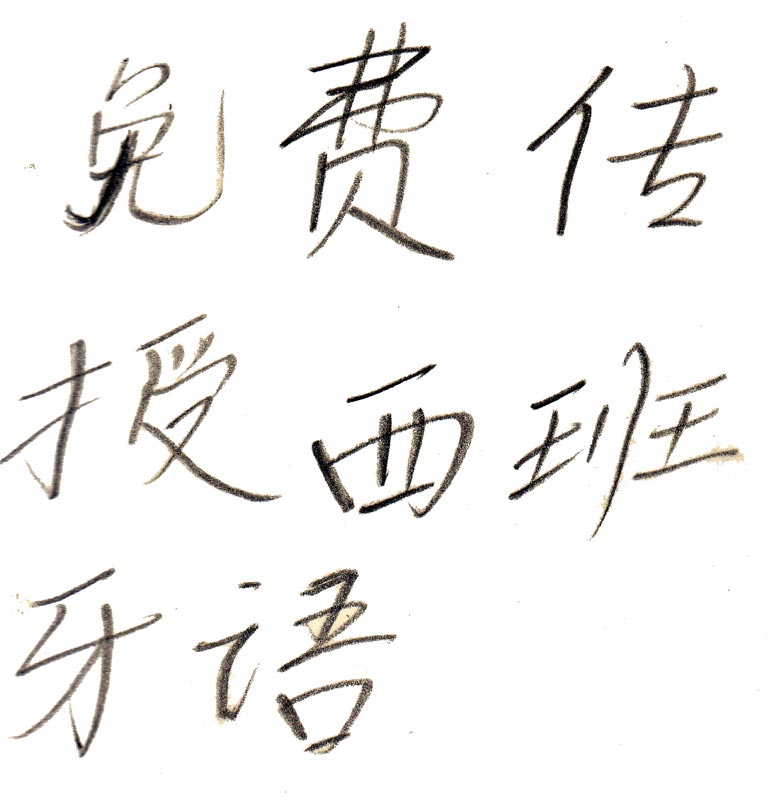 免费传
授西班
牙语